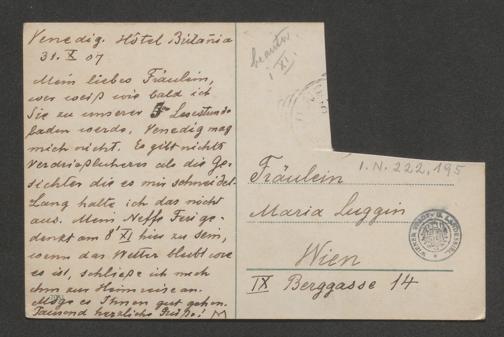 Venedig. Hôtel Britannia
31. X 07
Mein liebes Fräulein,
wer weiß wie bald ich
Sie zu unserer Lesestunde
laden werde. Venedig mag
mich nicht. Es gibt nichts
verdrießlicheres als die Ge-
sichter die es mir schneidet.
Lang halte ich das nicht
aus. Mein Neffe Feri ge-
denkt am 8t XI hier zu sein,
wenn das Wetter bleibt wie
es ist, schließe ich mich
ihm zur Heimreise an.
Möge es Ihnen gut gehen.
Tausend herzliche Grüße! M
beantw.
1 XI.
I. N. 222.195
Fräulein
Maria Luggin
Wien
IX Berggasse 14